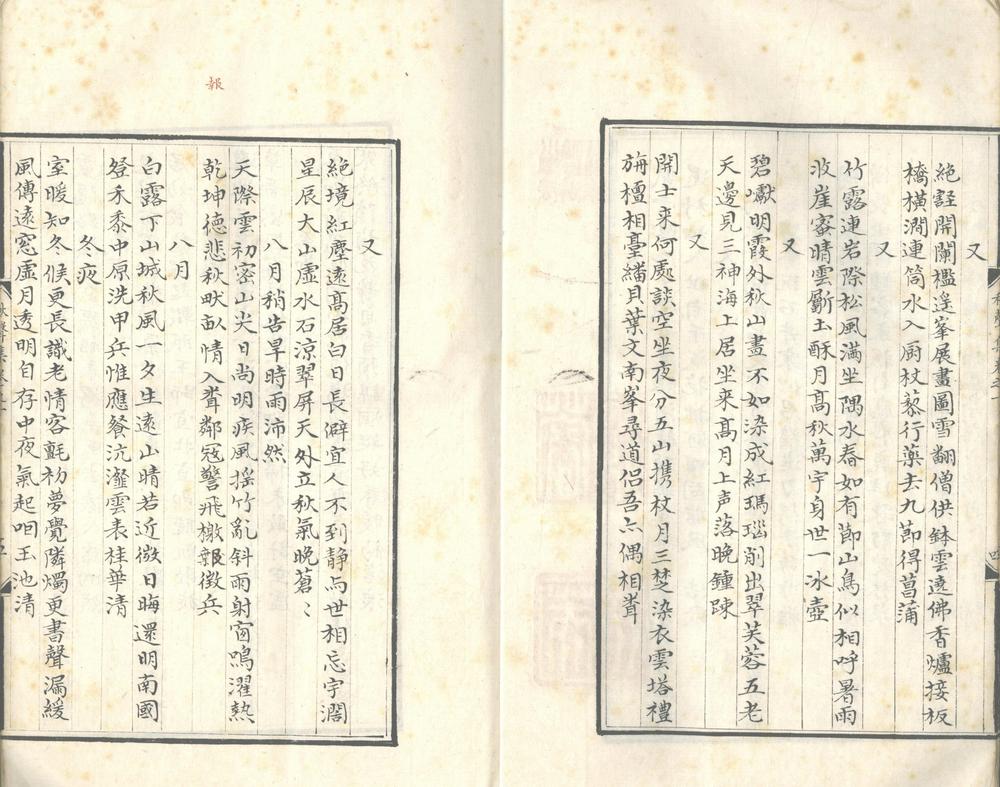 又
絶詿開闌檻遥峯展畫圖雪翻僧供鉢雲遶佛香爐接板
橋橫澗連筒水入厨杖藜行藥去九節得菖蒲
又
竹露連岩際松風滿坐隅水舂如有節山鳥似相呼暑雨
洊崖寉晴雲斸土酥月髙秋萬宇身世一冰壺
又
碧巘明霞外秋山畫不如染成紅瑪瑙削出翠芙蓉五老
天邊見三神海上居坐来髙月上声落晚鍾踈
又
開士来何處談空坐夜分五山携杖月三楚染衣雲塔禮
旃檀相臺繙貝葉文南峯尋道侣吾亦偶相耷
又
絶境紅塵遠髙居白日長僻宜人不到静与世相忘宇濶
星辰大山虚水石涼翠屏天外立秋氣晚蒼〻
八月稍告旱時雨沛然
天際雲初密山尖日尚明疾風摇竹亂斜雨射窗鳴濯熱
乾坤徳悲秋畎畝情入耷鄰冦警飛檄報徴兵
八月
白露下山城秋風一夕生遠山晴若近微日晦還明南國
登禾黍中原洗甲兵惟應餐沆瀣雲表桂華清
冬夾
室暖知冬候更長識老情容氈初夢覺隣燭更書聲漏緩
風傳遠窓虚月透明自存中夜氣起咽玉池清
報
四
五